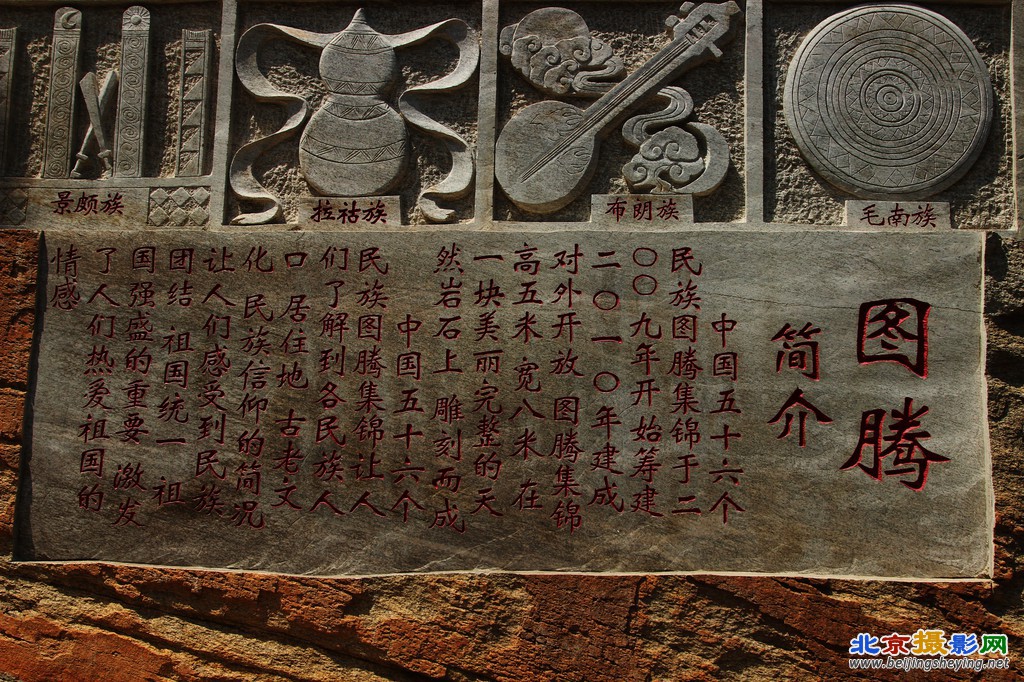 景颇族
拉祜族
布朗族
毛南族
图腾
简介
中国五十六个
民族图腾集锦于二
〇〇九年开始筹建
二〇一〇年建成
对外开放 图腾集锦
高五米 宽八米 在
一块美丽完整的天
然岩石上 雕刻而成
中国五十六个
民族图腾集锦让人
们了解到各民族人
口 居住地 古老文
化 民族信仰的简况
让人们感受到民族
团结 祖国统一 祖
国强盛的重要 激发
了人们热爱祖国的
情感
北京摄影网
www.beijingsheying.net